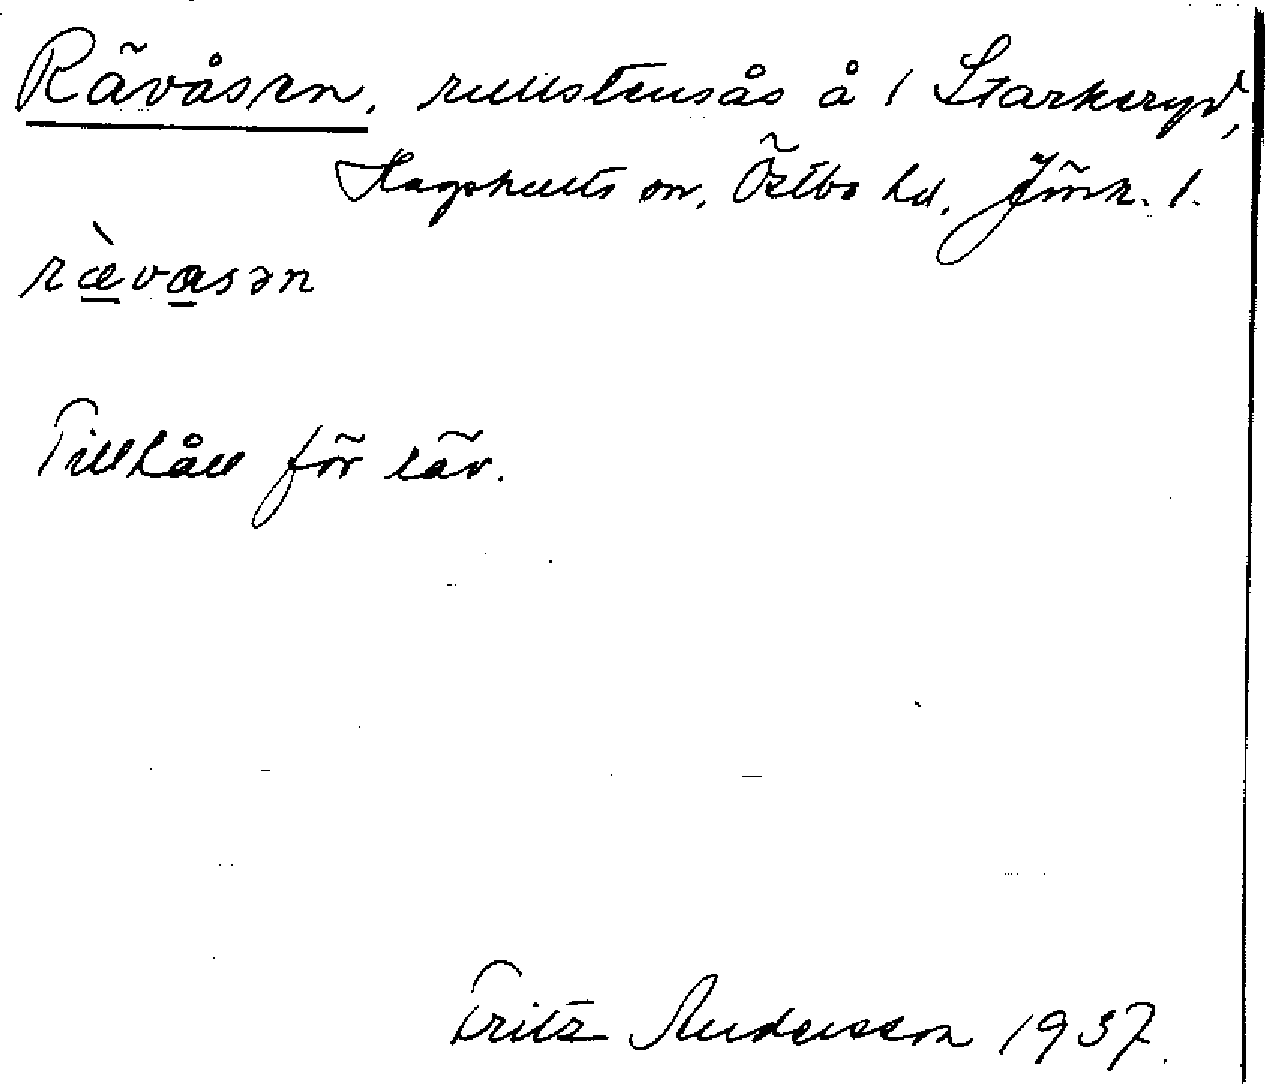 Rävåsen, rullstensås å 1 Starkeryd,
Hagshults sn, Östbo hd, Jönk. l.
rævasən
Tillhåll för räv.
Fritz Andersson 1937.